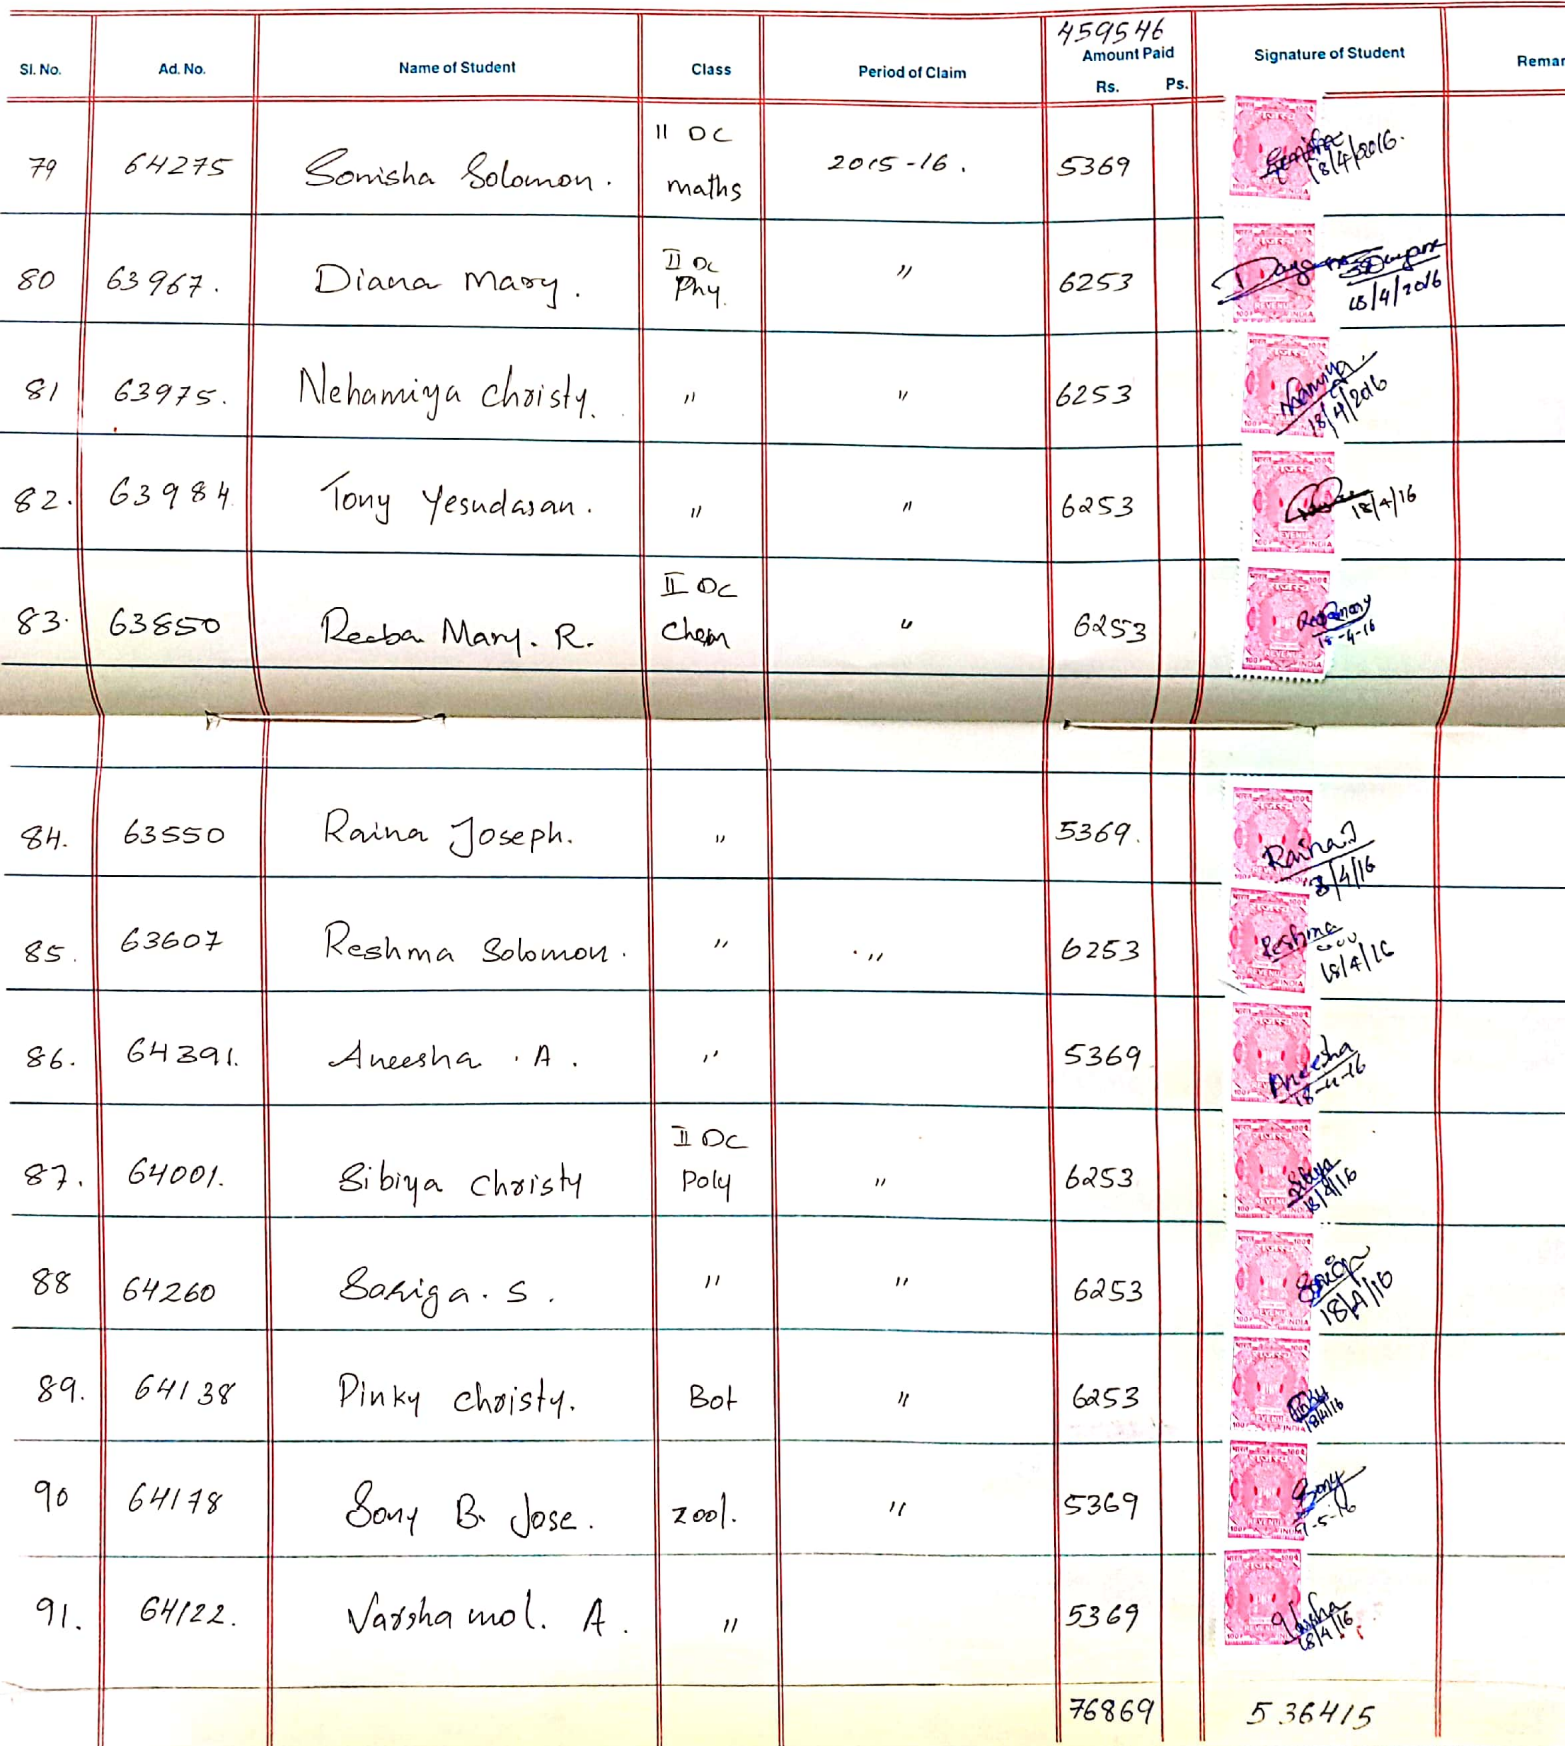 459546
Sl. No. Ad. No. Name of Student Class Period of Claim Amount Paid Rs. Ps. Signature of Student Remar
79 64275 Sonisha Solomon. II DC maths 2015-16. 5369 18/4/2016.
80 63967. Diana Mary. II DC Phy. " 6253 18/4/2016
81 63975. Nehamiya Christy. " " 6253 18/4/2016
82. 63984 Tony Yesudasan. " " 6253 18/4/16
83. 63850 Reeba Mary. R. II DC Chem " 6253 18-4-16
84. 63550 Raina Joseph. " 5369. Raina J 18/4/16
85. 63607 Reshma Solomon. " " 6253 Reshma 18/4/16
86. 64391. Aneesha . A. " 5369 Aneesha 18-4-16
87. 64001. Sibiya Christy II DC Poly " 6253 Sibiya 18/4/16
88 64260 Sariga. S. " " 6253 18/4/16
89. 64138 Pinky Christy. Bot " 6253 Pinky 18/4/16
90 64178 Sony B. Jose. Zool. " 5369 Sony 9-5-16
91. 64122. Varsha mol. A. " 5369 Varsha 18/4/16
76869 536415